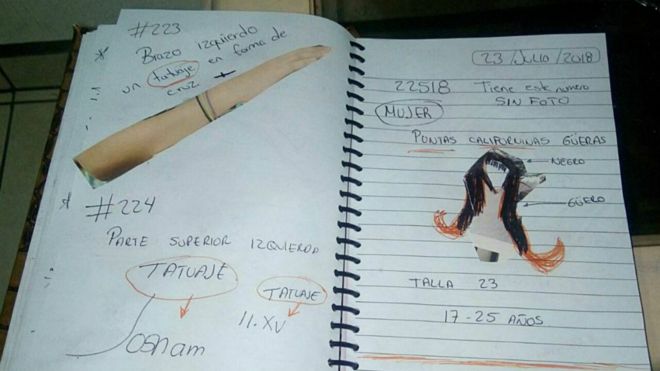 #223
Brazo izquierdo
un tatuaje en forma de
cruz
#224
PARTE SUPERIOR IZQUIERDA
TATUAJE
TATUAJE
Josnam
11.XV
23/JULIO/2018
22518 Tiene este numero
SIN FOTO
MUJER
PUNTAS CALIFORNINAS GÜERAS
NEGRO
GÜERO
TALLA 23
17-25 AÑOS